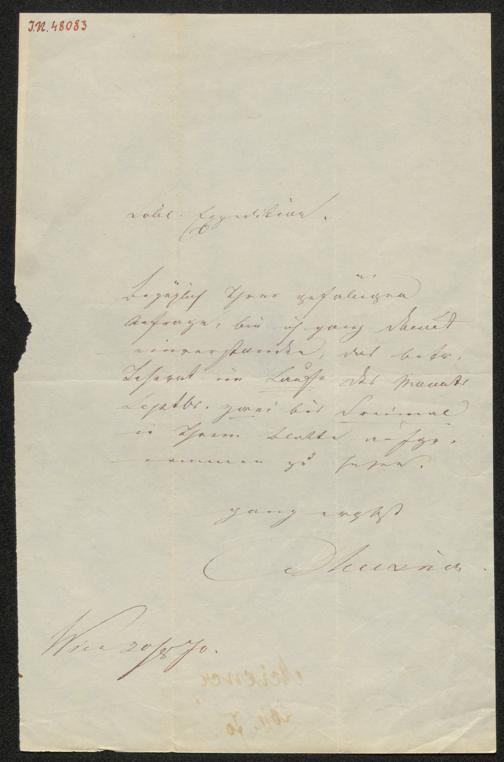 I.N. 48083
Löbl. Expedition.
Bezüglich Ihrer gefälligen
Anfrage, bin ich ganz damit
einverstanden, das betr.
Inserat im Laufe des Monats
Septbr. zwei bis dreimal
in Ihrem Blatte aufge-
nommen zu sehen.
ganz ergbst
Wien 20/8 70.